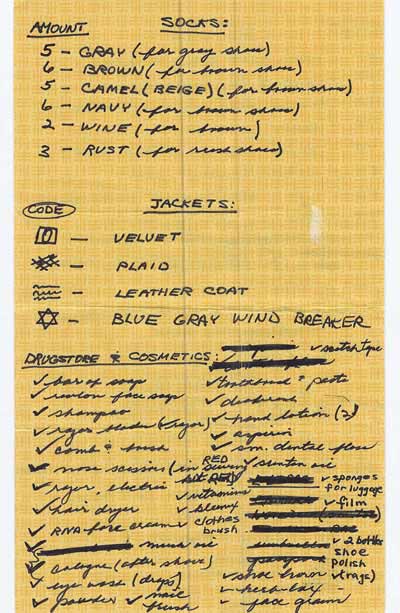 AMOUNT SOCKS:
5 - GRAY (for gray shoes)
6 - BROWN (for brown shoes)
5 - CAMEL (BEIGE) (for brown shoes)
6 - NAVY (for brown shoes)
2 - WINE (for brown)
3 - RUST (for rush shoes)
CODE JACKETS:
- VELVET
- PLAID
- LEATHER COAT
- BLUE GRAY WIND BREAKER
DRUGSTORE & COSMETICS:
✓ scotch tape
✓ bar of soap
✓ toothbrush & paste
✓ revlon face soap
✓ deodorant
✓ shampoo
✓ hand lotion (2)
✓ razor blades (& razor)
✓ aspirin
✓ comb & brush
✓ sm. dental floss
✓ nose scissors (in sewing kit RED)
✓ razor, electric
✓ vitamins
✓ sponges for luggage
✓ hair dryer
✓ film
✓ RNA face creame
✓ clothes brush
✓ cologne (after shave)
✓ 2 bottles shoe polish
✓ eye wash (drops)
✓ shoe horn
✓ rags)
✓ powder
✓ nail brush